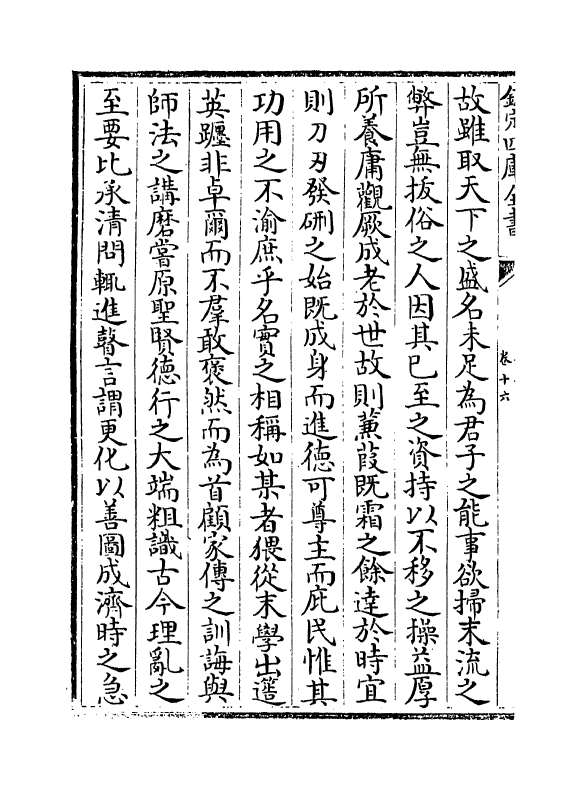 欽定四庫全書
卷十六
故雖取天下之盛名未足為君子之能事欲掃末流之
弊豈無拔俗之人因其已至之資持以不移之操益厚
所養庸觀厥成老於世故則蒹葭既霜之餘達於時宜
則刀刃發硎之始既成身而進德可尊主而庇民惟其
功用之不渝庶乎名實之相稱如某者猥從末學出簉
英躔非卓爾而不羣敢褎然而為首顧家傳之訓誨與
師法之講磨嘗原聖賢德行之大端粗識古今理亂之
至要比承清問輒進瞽言謂更化以善圖成濟時之急